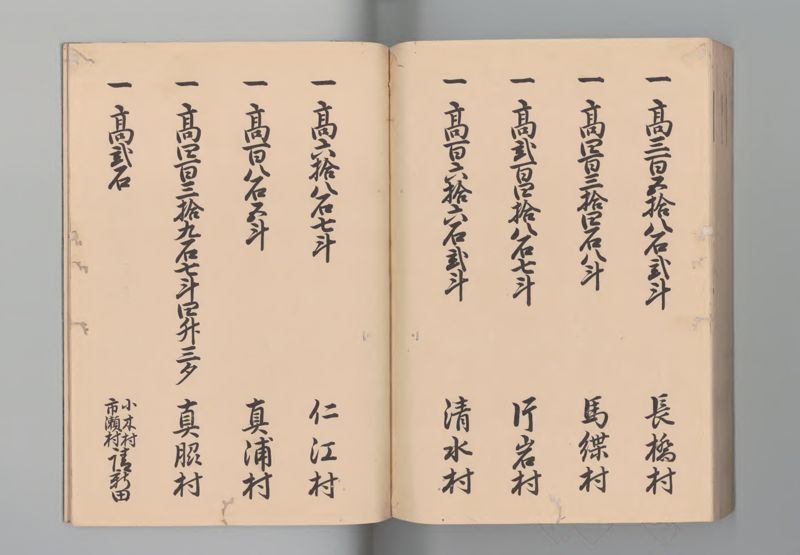 一 高三百五拾八石弐斗 長橋村
一 高四百三拾四石八斗 馬緤村
一 高弐百四拾八石七斗 片岩村
一 高百六拾六石弐斗 清水村
一 高六拾八石七斗 仁江村
一 高百八石五斗 真浦村
一 高四百三拾九石七斗四升三夕 真脇村
一 高弐石 小木村市瀬村請新田